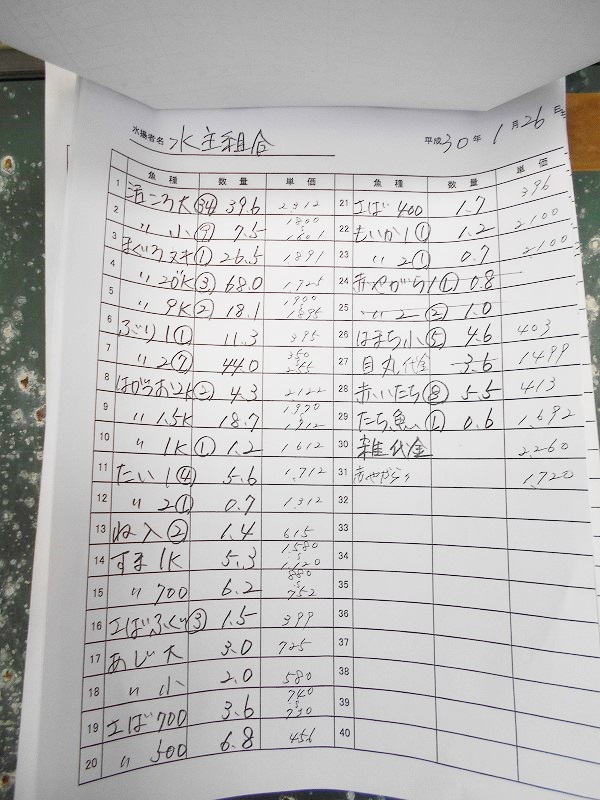 水揚者名 水主組合
平成30年1月26日
魚種 数量 単価
1 活ころ大㉞ 39.6 2312
2 〃 小⑦ 7.5 1800 s 1601
3 まぐろヌキ① 26.5 1891
4 〃 20K③ 68.0 1725
5 〃 9K② 18.1 1900 s 1895
6 ぶり1① 11.3 395
7 〃 2⑦ 44.0 350 s 245
8 はがつお2K② 4.3 2122
9 〃 1.5K 18.7 1970 s 1912
10 〃 1K① 1.2 1612
11 たい1④ 5.6 1,712
12 〃 2① 0.7 1,312
13 ぬ入② 1.4 615
14 すま1K 5.3 1,580 s 1,120
15 〃 700 6.2 880 s 752
16 エばふぐ③ 1.5 399
17 あじ大 3.0 725
18 〃 小 2.0 580
19 エば700 3.6 740 s 730
20 〃 500 6.8 456
魚種 数量 単価
21 エば400 1.7 396
22 もいか1① 1.2 2100
23 〃 2① 0.7 2100
24 赤やがら1① 0.8
25 〃 2② 1.0
26 はまち小⑤ 4.6 403
27 目丸代金 3.6 1499
28 赤いたち⑧ 5.5 413
29 たち魚① 0.6 1,692
30 雑代金 2,260
31 赤やがら 1,720
32
33
34
35
36
37
38
39
40